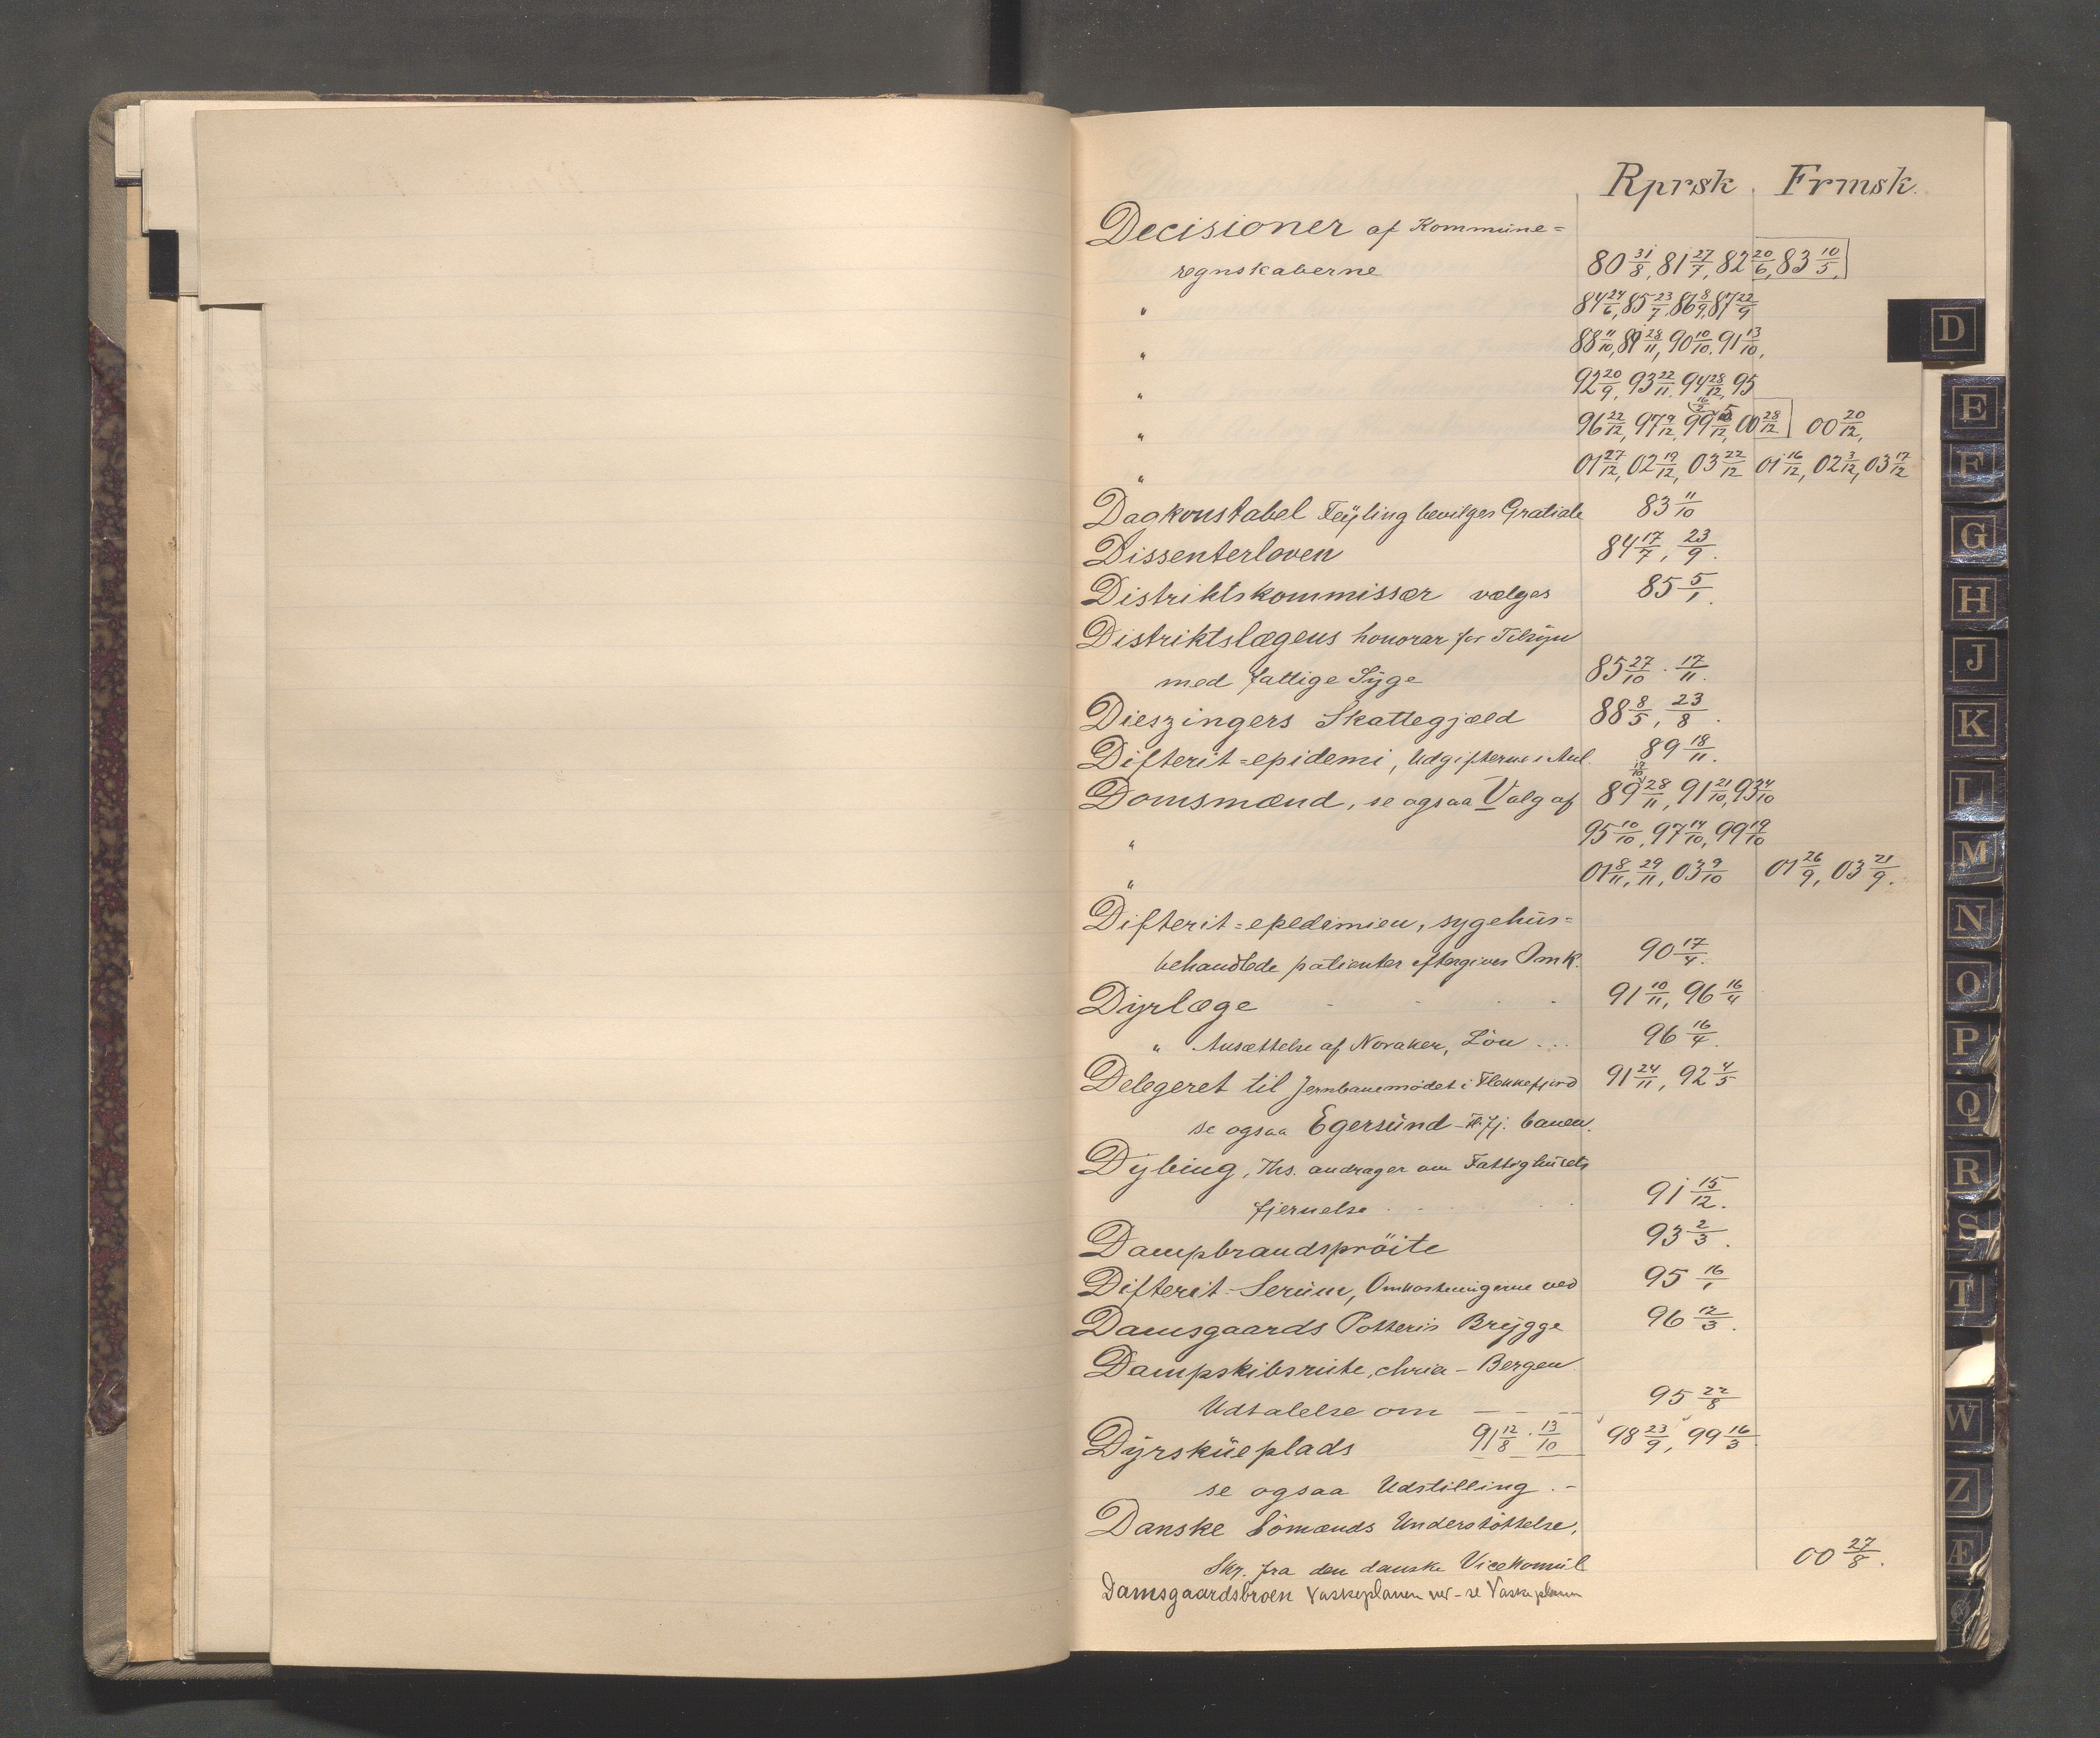 Rprsk. Frmsk.
Decisioner af Kommune=
regnskaberne 80 31/8, 81 27/7, 82 20/6, 83 10/5,
" 84 24/6, 85 23/7, 86 8/9, 87 22/9
" 88 11/10, 89 28/11, 90 10/10, 91 13/10,
" 92 20/9, 93 22/11, 94 28/12, 95
" 96 22/12, 97 9/12, 99 /12, 00 28/12 00 20/12,
" 01 27/12, 02 19/12, 03 22/12 01 16/12, 02 3/12, 03 17/12
Dagkonstabel Feyling bevilges Gratiale 83 11/10
Dissenterloven 84 17/7, 23/9.
Distriktskommissær vælges 85 5/1.
Distriktslægens honorar for Tilsyn
med fattige Syge 85 27/10. 17/11.
Dieszingers Skattegjæld 88 8/5, 23/8.
Difterit=epidemi, Udgifterne i Anl. 89 18/11.
Domsmænd, se ogsaa Valg af 89 28/11, 91 21/10, 93 4/10
" 95 10/10, 97 14/10, 99 19/10
" 01 8/11, 29/11, 03 9/10 01 26/9, 03 21/9.
Difterit=epedemien, sygehus=
behandlede patienter eftergives Omk. 90 17/4.
Dyrlæge 91 10/11, 96 16/4
" Ansættelse af Noraker, Lön ... 96 16/4.
Delegeret til Jernbanemødet i Flekkefjord 91 24/11, 92 4/5
se ogsaa Egersund-Fl.fj. banen.
Dybing, Ths. andrager om Fattighusets
fjernelse 91 15/12.
Dampbrandspröite 93 2/3.
Difterit-Serum, Omkostningerne ved 95 16/1
Damsgaards Potteris Brygge 96 12/3.
Dampskibsrute, chria - Bergen
Udtalelse om - - - 95 22/8
Dyrskueplads 91 12/8. 13/10 98 23/9, 99 16/3.
se ogsaa Udstilling.-
Danske Sömænds Understöttelse,
Skr. fra den danske Vicekonsul 00 27/8.
Damsgaardsbroen Vaskeplanen ved - se Vaskeplanen
D
E
F
G
H
J
K
L
M
N
O
P
Q
R
S
T
W
Z
Æ
Ø